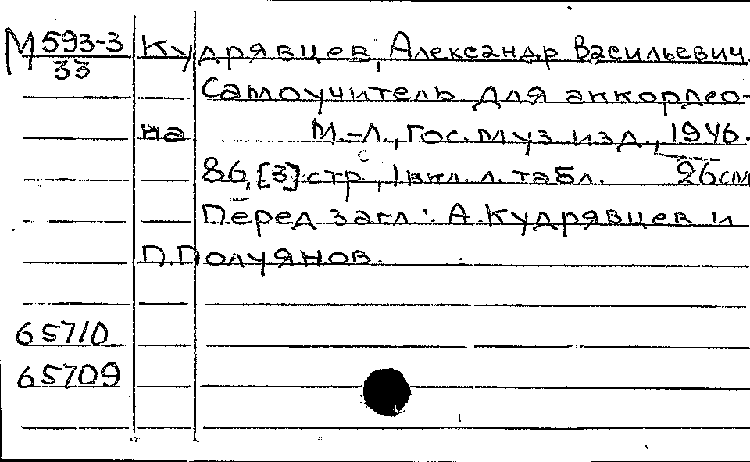 М 593-3 Кудрявцев, Александр Васильевич.
33
Самоучитель для аккордео-
на М.-Л., Гос. муз. изд., 1946.
86, [3] стр, 1 вкл. л. табл. 26 см
Перед загл: А. Кудрявцев и
П. Полуянов.
65710
65709